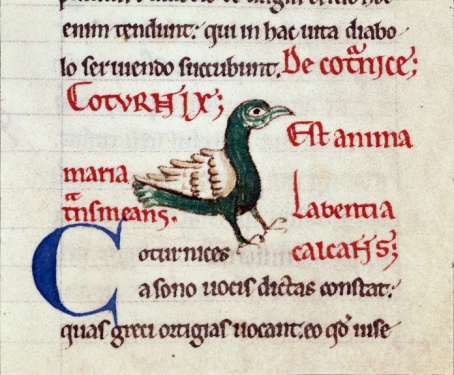 enim tendunt: qui in hac uita diabo
lo seruiendo succubunt. De coturnice;
COTVRNIX;
Est anima
maria
tnsmeans.
Labentia
calcans;
Coturnices
a sono uocis dictas constat:
quas greci ortigias uocant. eo qd uise